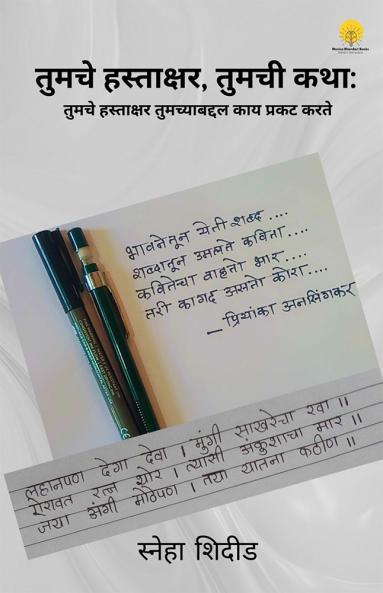 Monica Bhandari Books
तुमचे हस्ताक्षर, तुमची कथा:
तुमचे हस्ताक्षर तुमच्याबद्दल काय प्रकट करते
भावनेतून येती शब्द ....
शब्दातून उमलते कविता ....
कवितेचा वाहतो भार ....
तरी कागद असतो कोरा ....
– प्रियांका अनसिंगकर
लहानपण देगा देवा । मुंगी साखरेचा रवा ॥
ऐरावत रत्न थोर । त्यासी अंकुशाचा मार ॥
जया अंगी मोठेपण । तया यातना कठीण ॥
स्नेहा शिदीड